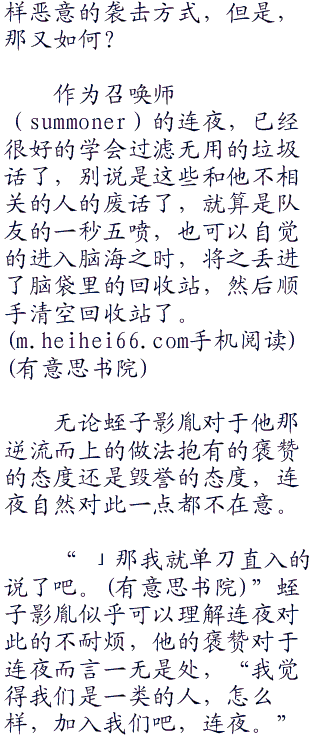 样恶意的袭击方式，但是，
那又如何？
作为召唤师
（summoner）的连夜，已经
很好的学会过滤无用的垃圾
话了，别说是这些和他不相
关的人的废话了，就算是队
友的一秒五喷，也可以自觉
的进入脑海之时，将之丢进
了脑袋里的回收站，然后顺
手清空回收站了。
(m.heihei66.com手机阅读)
(有意思书院)
无论蛭子影胤对于他那
逆流而上的做法抱有的褒赞
的态度还是毁誉的态度，连
夜自然对此一点都不在意。
“ 」那我就单刀直入的
说了吧。(有意思书院)”蛭
子影胤似乎可以理解连夜对
此的不耐烦，他的褒赞对于
连夜而言一无是处，“我觉
得我们是一类的人，怎么
样，加入我们吧，连夜。”